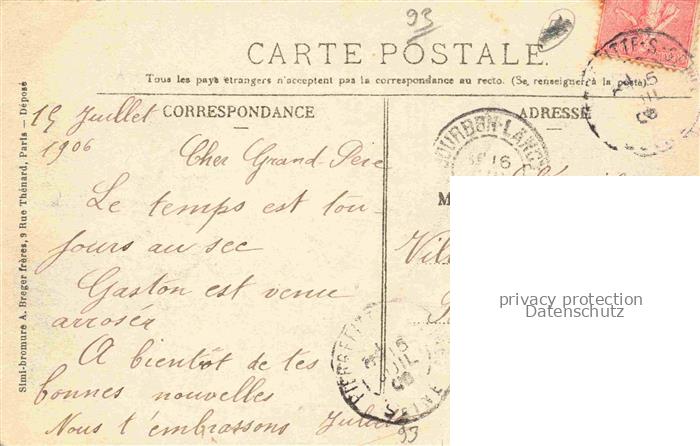 93
CARTE POSTALE.
Tous les pays étrangers n'acceptent pas la correspondance au recto. (Se renseigner à la poste).
CORRESPONDANCE
ADRESSE
15 Juillet
1906
Cher Grand Père
Le temps est tou-
jours au sec
Gaston est venu
arroser
A bientôt de tes
bonnes nouvelles
Nous t'embrassons Juliet
Simi-bromure A. Breger frères, 9 Rue Thénard, Paris — Déposé
BOURBON-LANCY
16
M
Vil
15
JUIL
06
15
JUIL
06
93
privacy protection
Datenschutz